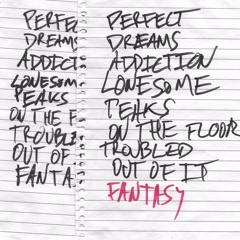 PERFECT
DREAMS
ADDICTION
LONESOME
PEAKS
ON THE F
TROUBLED
OUT OF
FANTA
PERFECT
DREAMS
ADDICTION
LONESOME
PEAKS
ON THE FLOOR
TROUBLED
OUT OF IT
FANTASY